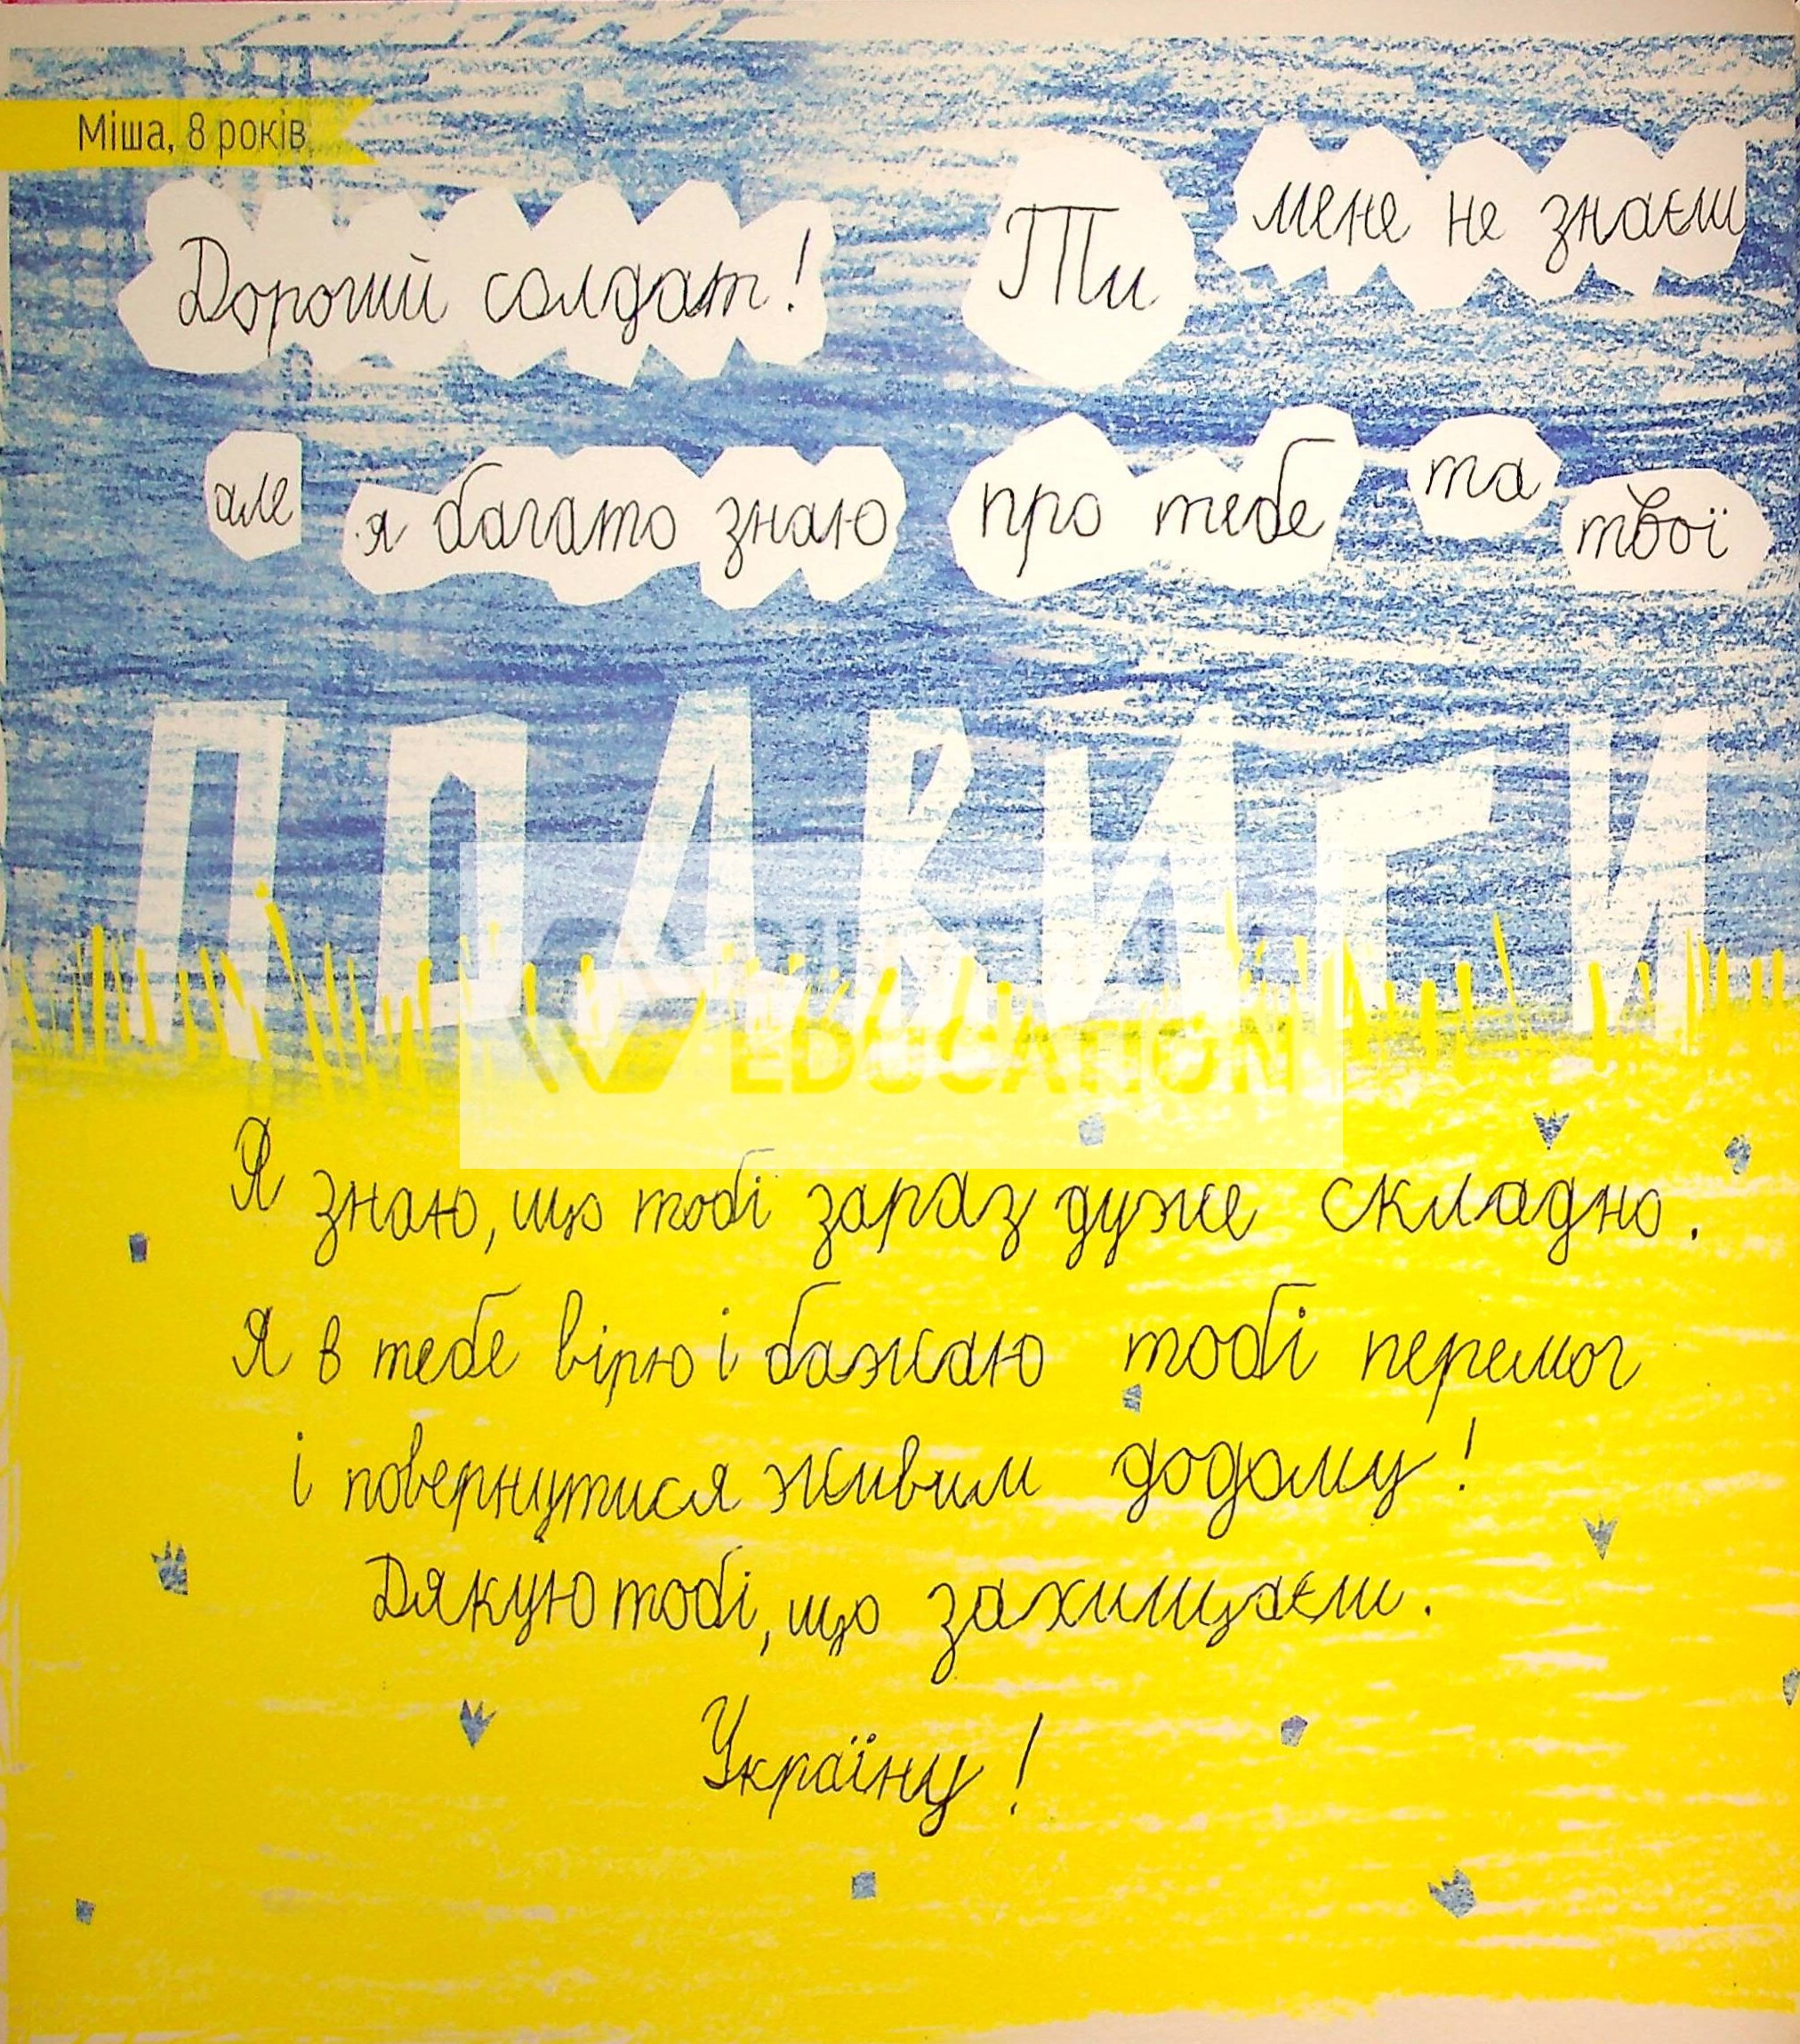 Міша, 8 років
Дорогий солдат! Ти мене не знаєш
але я багато знаю про тебе та твої
ПОДВИГИ
EDUCATION
Я знаю, що тобі зараз дуже складно.
Я в тебе вірю і бажаю тобі перемог
і повернутися живим додому!
Дякую тобі, що захищаєш.
Україну!